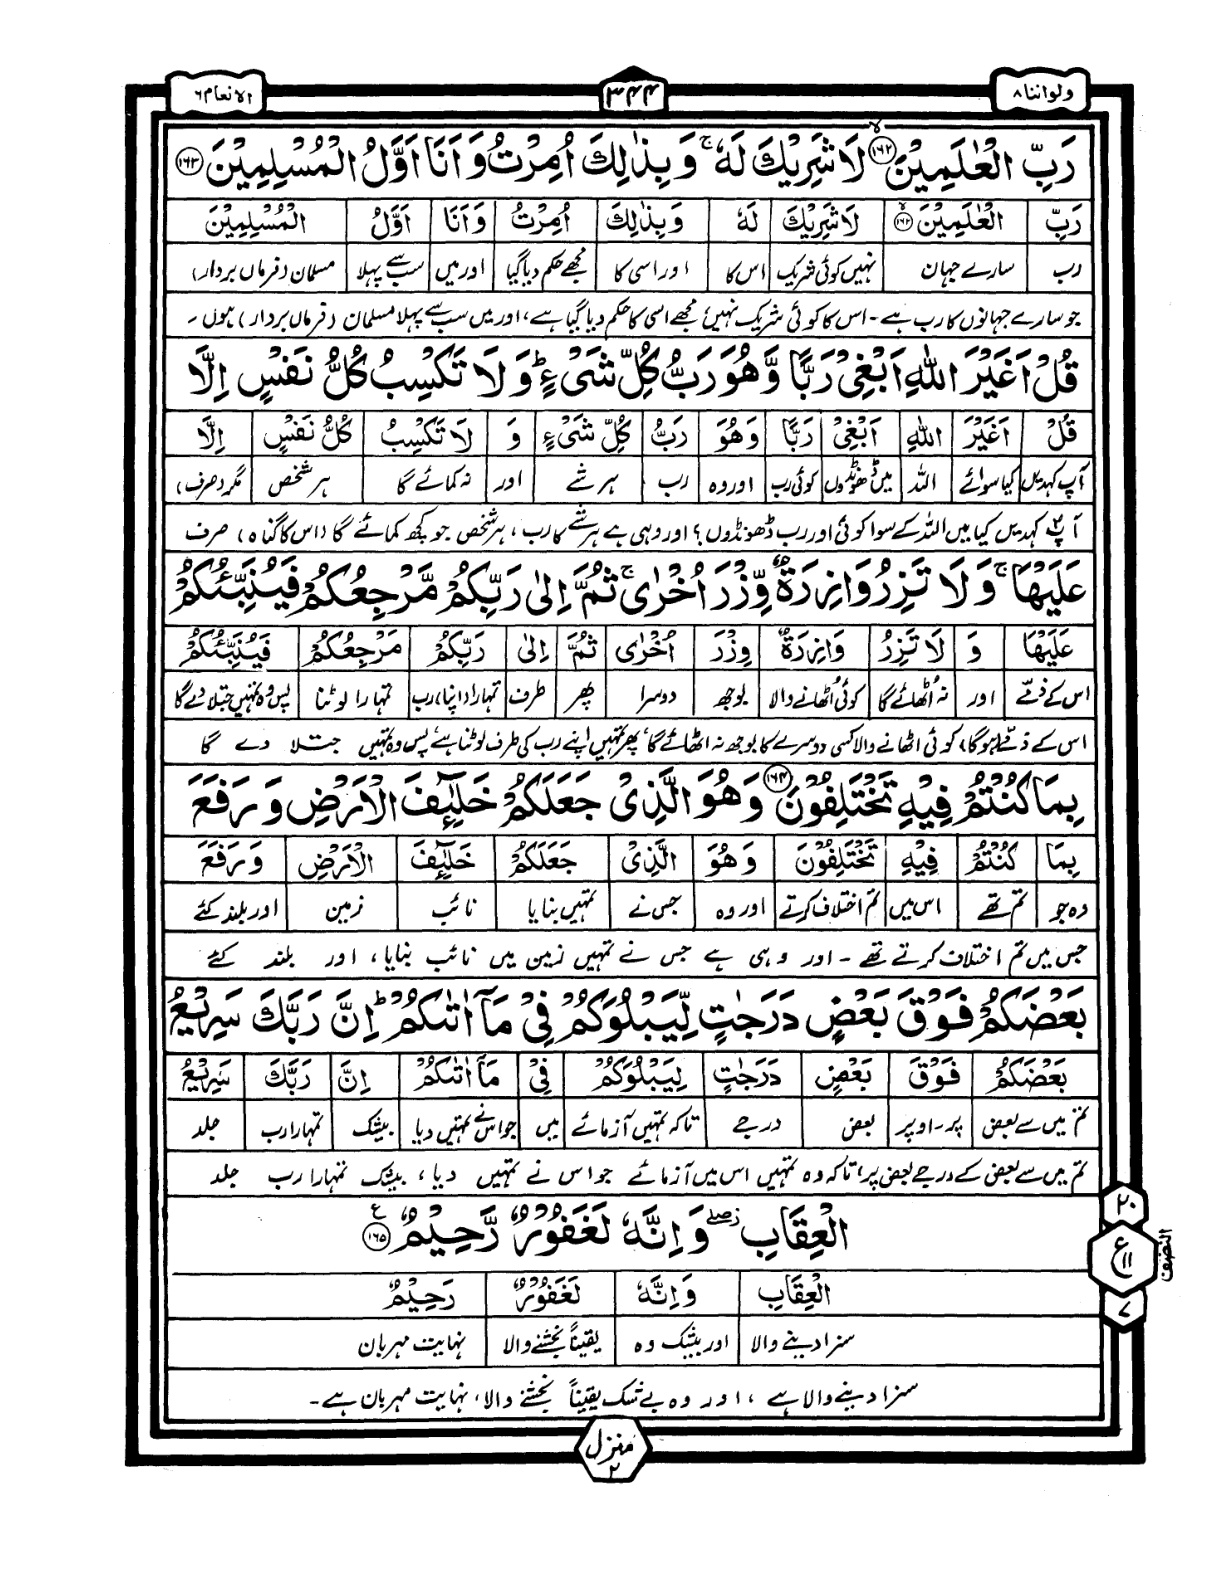 ولواننا ۸
۳۴۴
الانعام ۶
رَبِّ الْعٰلَمِيْنَ ﴿۱۶۲﴾ لَا شَرِيْكَ لَهٗ ۚ وَ بِذٰلِكَ اُمِرْتُ وَ اَنَا اَوَّلُ الْمُسْلِمِيْنَ ﴿۱۶۳﴾
رَبِّ الْعٰلَمِيْنَ ﴿۱۶۲﴾ لَا شَرِيْكَ لَهٗ وَ بِذٰلِكَ اُمِرْتُ وَ اَنَا اَوَّلُ الْمُسْلِمِيْنَ
رب سارے جہان نہیں کوئی شریک اس کا اور اسی کا مجھے حکم دیا گیا اور میں سب سے پہلا مسلمان (فرماں بردار)
جو سارے جہانوں کا رب ہے ۔ اس کا کوئی شریک نہیں، مجھے اسی کا حکم دیا گیا ہے، اور میں سب سے پہلا مسلمان (فرماں بردار) ہوں ۔
قُلْ اَغَيْرَ اللّٰهِ اَبْغِيْ رَبًّا وَّ هُوَ رَبُّ كُلِّ شَيْءٍ ؕ وَ لَا تَكْسِبُ كُلُّ نَفْسٍ اِلَّا
قُلْ اَغَيْرَ اللّٰهِ اَبْغِيْ رَبًّا وَهُوَ رَبُّ كُلِّ شَيْءٍ وَ لَا تَكْسِبُ كُلُّ نَفْسٍ اِلَّا
آپ کہدیں کیا سوائے اللہ میں ڈھونڈوں کوئی رب اور وہ رب ہر شے اور نہ کمائے گا ہر شخص مگر (صرف)
آپؐ کہدیں کیا میں اللہ کے سوا کوئی اور رب ڈھونڈوں؟ اور وہی ہے ہر شے کا رب، ہر شخص جو کچھ کمائے گا (اس کا گناہ) صرف
عَلَيْهَا ۚ وَ لَا تَزِرُ وَازِرَةٌ وِّزْرَ اُخْرٰى ۚ ثُمَّ اِلٰى رَبِّكُمْ مَّرْجِعُكُمْ فَيُنَبِّئُكُمْ
عَلَيْهَا وَ لَا تَزِرُ وَازِرَةٌ وِزْرَ اُخْرٰى ثُمَّ اِلٰى رَبِّكُمْ مَرْجِعُكُمْ فَيُنَبِّئُكُمْ
اس کے ذمّے اور نہ اُٹھائے گا کوئی اُٹھانے والا بوجھ دوسرا پھر طرف تمہارا (اپنا) رب تمہارا لوٹنا پس وہ تمہیں جتلا دے گا
اس کے ذمّے ہوگا، کوئی اٹھانے والا کسی دوسرے کا بوجھ نہ اٹھائے گا، پھر تمہیں اپنے رب کی طرف لوٹنا ہے، پس وہ تمہیں جتلا دے گا
بِمَا كُنْتُمْ فِيْهِ تَخْتَلِفُوْنَ ﴿۱۶۴﴾ وَ هُوَ الَّذِيْ جَعَلَكُمْ خَلٰٓئِفَ الْاَرْضِ وَ رَفَعَ
بِمَا كُنْتُمْ فِيْهِ تَخْتَلِفُوْنَ وَ هُوَ الَّذِيْ جَعَلَكُمْ خَلٰٓئِفَ الْاَرْضِ وَ رَفَعَ
وہ جو تم تھے اس میں تم اختلاف کرتے اور وہ جس نے تمہیں بنایا نائب زمین اور بلند کئے
جس میں تم اختلاف کرتے تھے ۔ اور وہی ہے جس نے تمہیں زمین میں نائب بنایا، اور بلند کئے
بَعْضَكُمْ فَوْقَ بَعْضٍ دَرَجٰتٍ لِّيَبْلُوَكُمْ فِيْ مَاۤ اٰتٰىكُمْ ؕ اِنَّ رَبَّكَ سَرِيْعُ
بَعْضَكُمْ فَوْقَ بَعْضٍ دَرَجٰتٍ لِيَبْلُوَكُمْ فِيْ مَاۤ اٰتٰىكُمْ اِنَّ رَبَّكَ سَرِيْعُ
تم میں سے بعض پر۔اوپر بعض درجے تاکہ تمہیں آزمائے میں جو اس نے تمہیں دیا بیشک تمہارا رب جلد
تم میں سے بعض کے درجے بعض پر، تاکہ وہ تمہیں اس میں آزمائے جو اس نے تمہیں دیا، بیشک تمہارا رب جلد
الْعِقَابِ ۖ وَ اِنَّهٗ لَغَفُوْرٌ رَّحِيْمٌ ﴿۱۶۵﴾
الْعِقَابِ وَ اِنَّهٗ لَغَفُوْرٌ رَحِيْمٌ
سزا دینے والا اور بیشک وہ یقیناً بخشنے والا نہایت مہربان
سزا دینے والا ہے، اور وہ بے شک یقیناً بخشنے والا، نہایت مہربان ہے ۔
۲۰
ع
۱۱
۷
النصف
منزل
۲